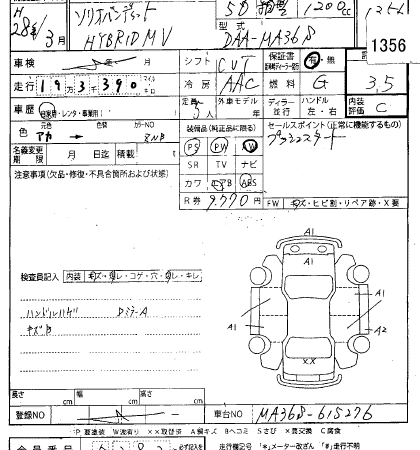 H
28年 3月
ソリオバンデット
HYBRID MV
5D
1200cc
型式
DAA-MA36S
1356
車検
走行 19万3千390 マイル キロ
シフト CVT
冷房 AAC
保証書 有・無
燃料 G
3.5
車歴 自家用・レンタ・事業用
定員 5人
外車モデル
ディーラー 並行
ハンドル 左・右
内装評価 C
色 アカ → 色替
カラーNO ZNB
装備品(純正品に限る)
PS PW AW
SR TV ナビ
カワ エアB ABS
R券 9,770円
セールスポイント(正常に機能するもの)
プッシュスタート
名義変更期限 月 日迄
積載
FW キズ・ヒビ割・リペア跡・X要
注意事項(欠品・修復・不具合箇所および状態)
検査員記入 内装 キズ・汚レ・コゲ・穴・切レ・キレ
ハンドルハゲ DミラーA
キズB
A1
A1
A1
A2
XX
長さ cm
幅 cm
高さ cm
登録NO
車台NO MA36S-615276
P 要塗装 W波有り ××取替済 Aキズ Bヘコミ Sさび ×要交換 C腐食
会員番号
走行機記号 「*」メーター改ざん 「#」走行不明